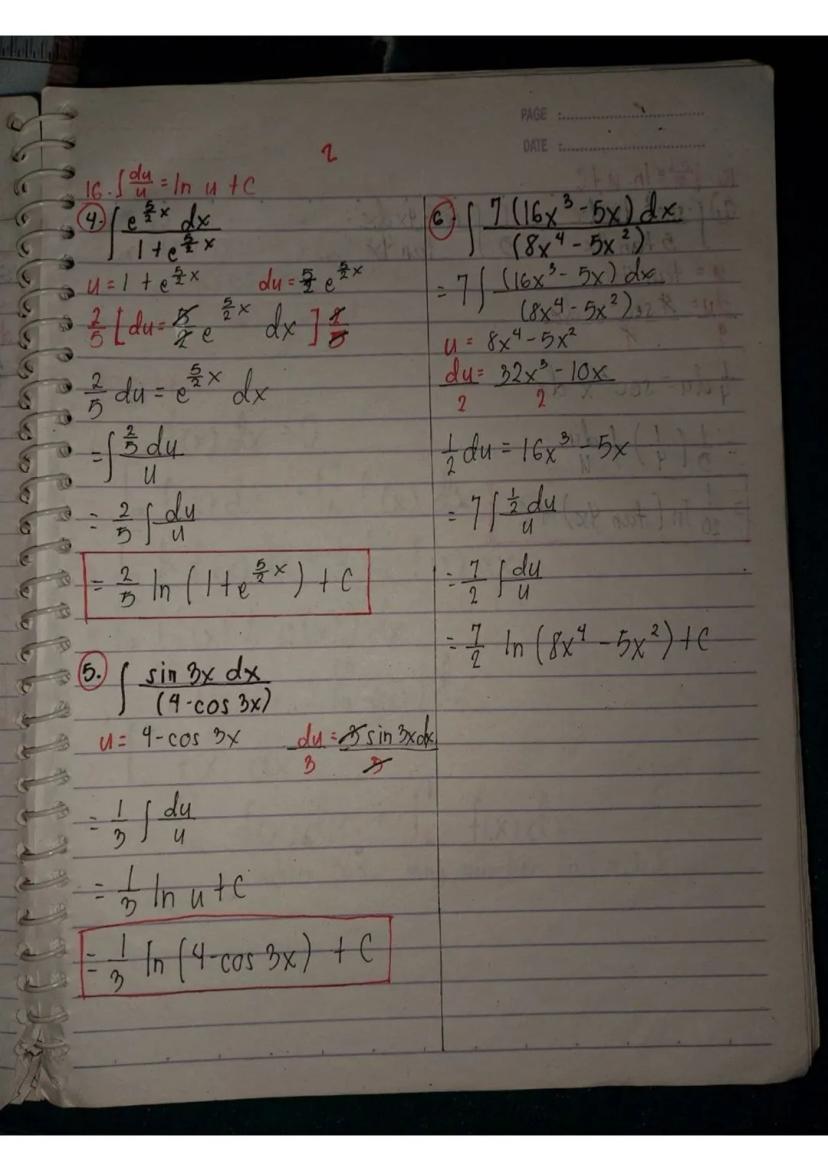 PAGE :
DATE :
2
16. ∫ du/u = ln u + C
4. ∫ e^(5/2 x) dx / (1 + e^(5/2 x))
u = 1 + e^(5/2 x)    du = 5/2 e^(5/2 x)
2/5 [ du = 5/2 e^(5/2 x) dx ] 2/5
2/5 du = e^(5/2 x) dx
= ∫ 2/5 du / u
= 2/5 ∫ du/u
= 2/5 ln (1 + e^(5/2 x)) + C
5. ∫ sin 3x dx / (4-cos 3x)
u = 4-cos 3x    du/3 = 3 sin 3x dx / 3
= 1/3 ∫ du/u
= 1/3 ln u + C
= 1/3 ln (4-cos 3x) + C
6. ∫ 7 (16x³ - 5x) dx / (8x⁴ - 5x²)
= 7 ∫ (16x³ - 5x) dx / (8x⁴ - 5x²)
u = 8x⁴ - 5x²
du/2 = 32x³ - 10x / 2
1/2 du = 16x³ - 5x
= 7 ∫ 1/2 du / u
= 7/2 ∫ du/u
= 7/2 ln (8x⁴ - 5x²) + C